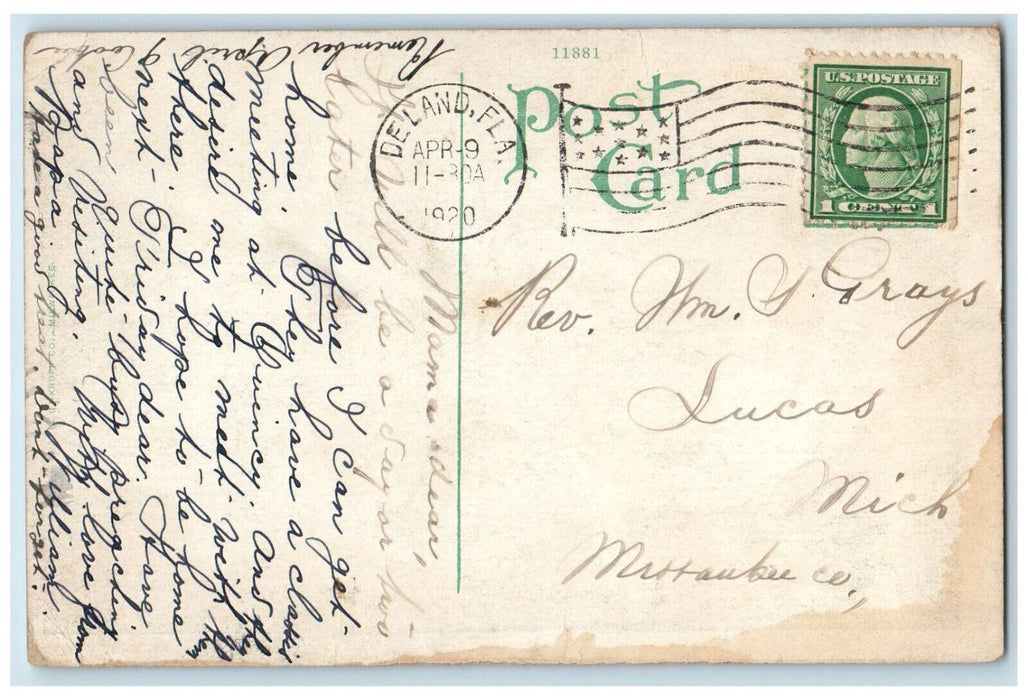 11881
Post
Card
DELAND, FLA.
APR-9
11-30A
1920
U.S. POSTAGE
1 CENTS 1
Rev. Wm. S Grays
Lucas
Mich
Missaukee co,
Mama dear,
It will be a day or two
later before I can get
home. They have a class
meeting at Quincy, and they
desired me to meet with them
there. I hope to be home
next Friday dear. Have
been quite busy preaching
and visiting. With love from
Papa. William.
Remember April 9